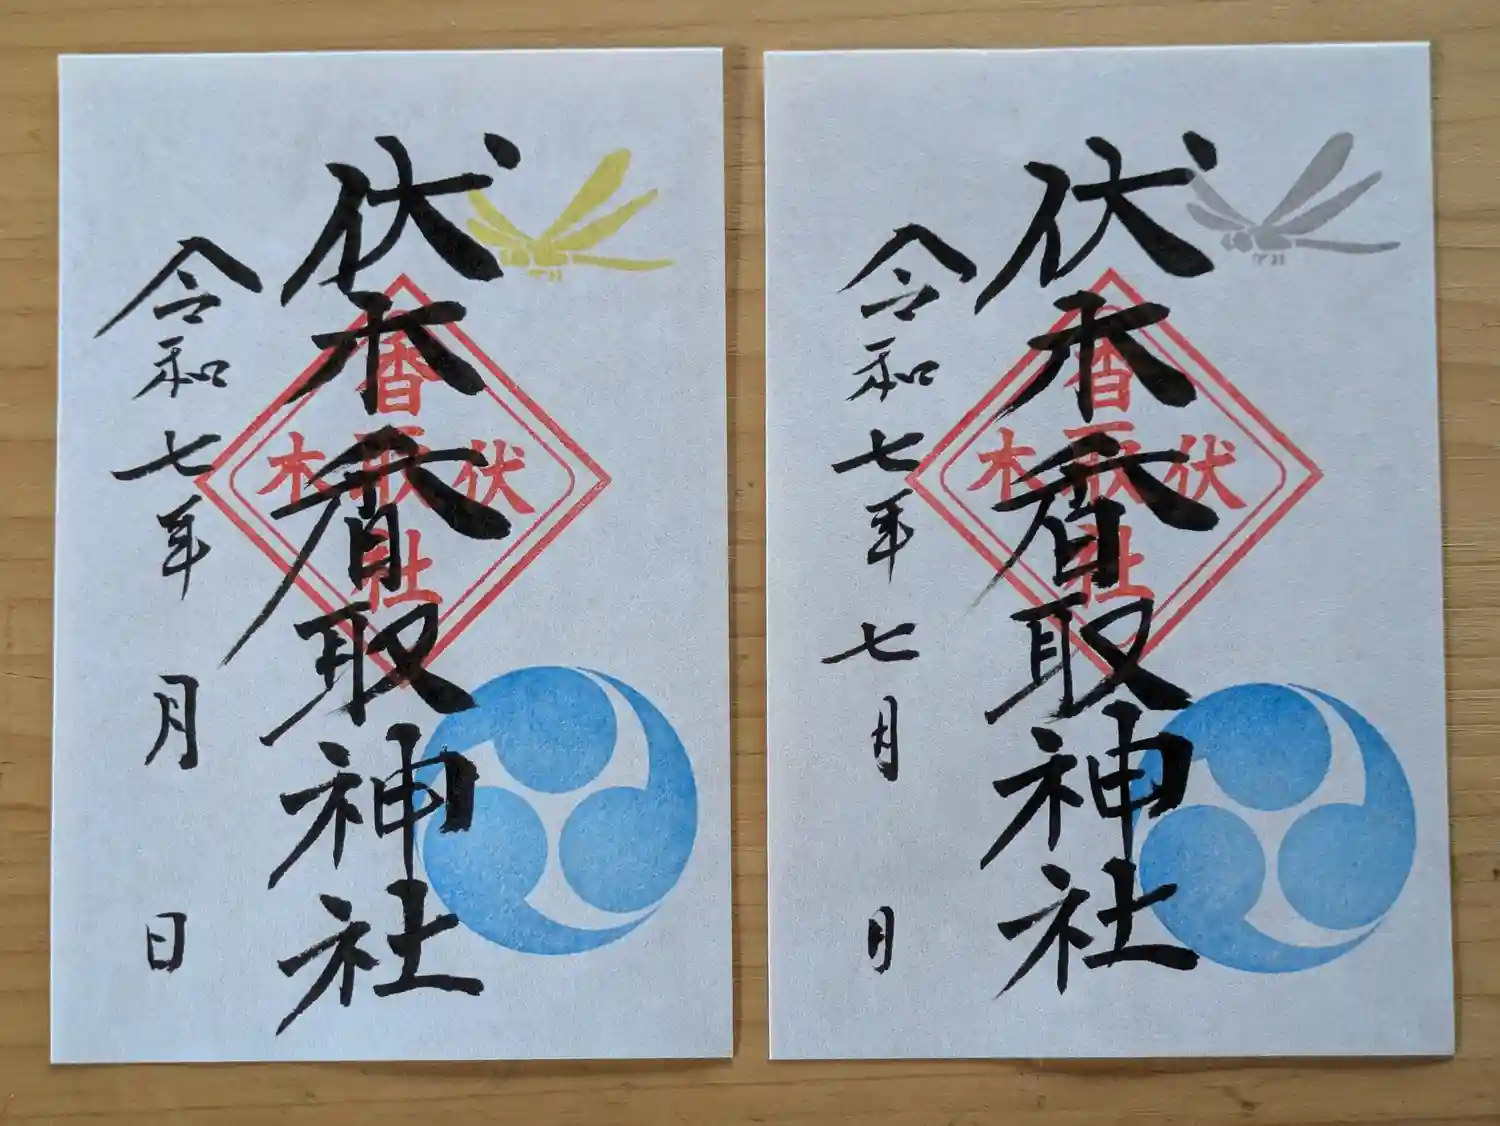 伏木香取神社
令和七年 月 日
伏木
香取社
伏木香取神社
令和七年七月 月
伏木
香取社